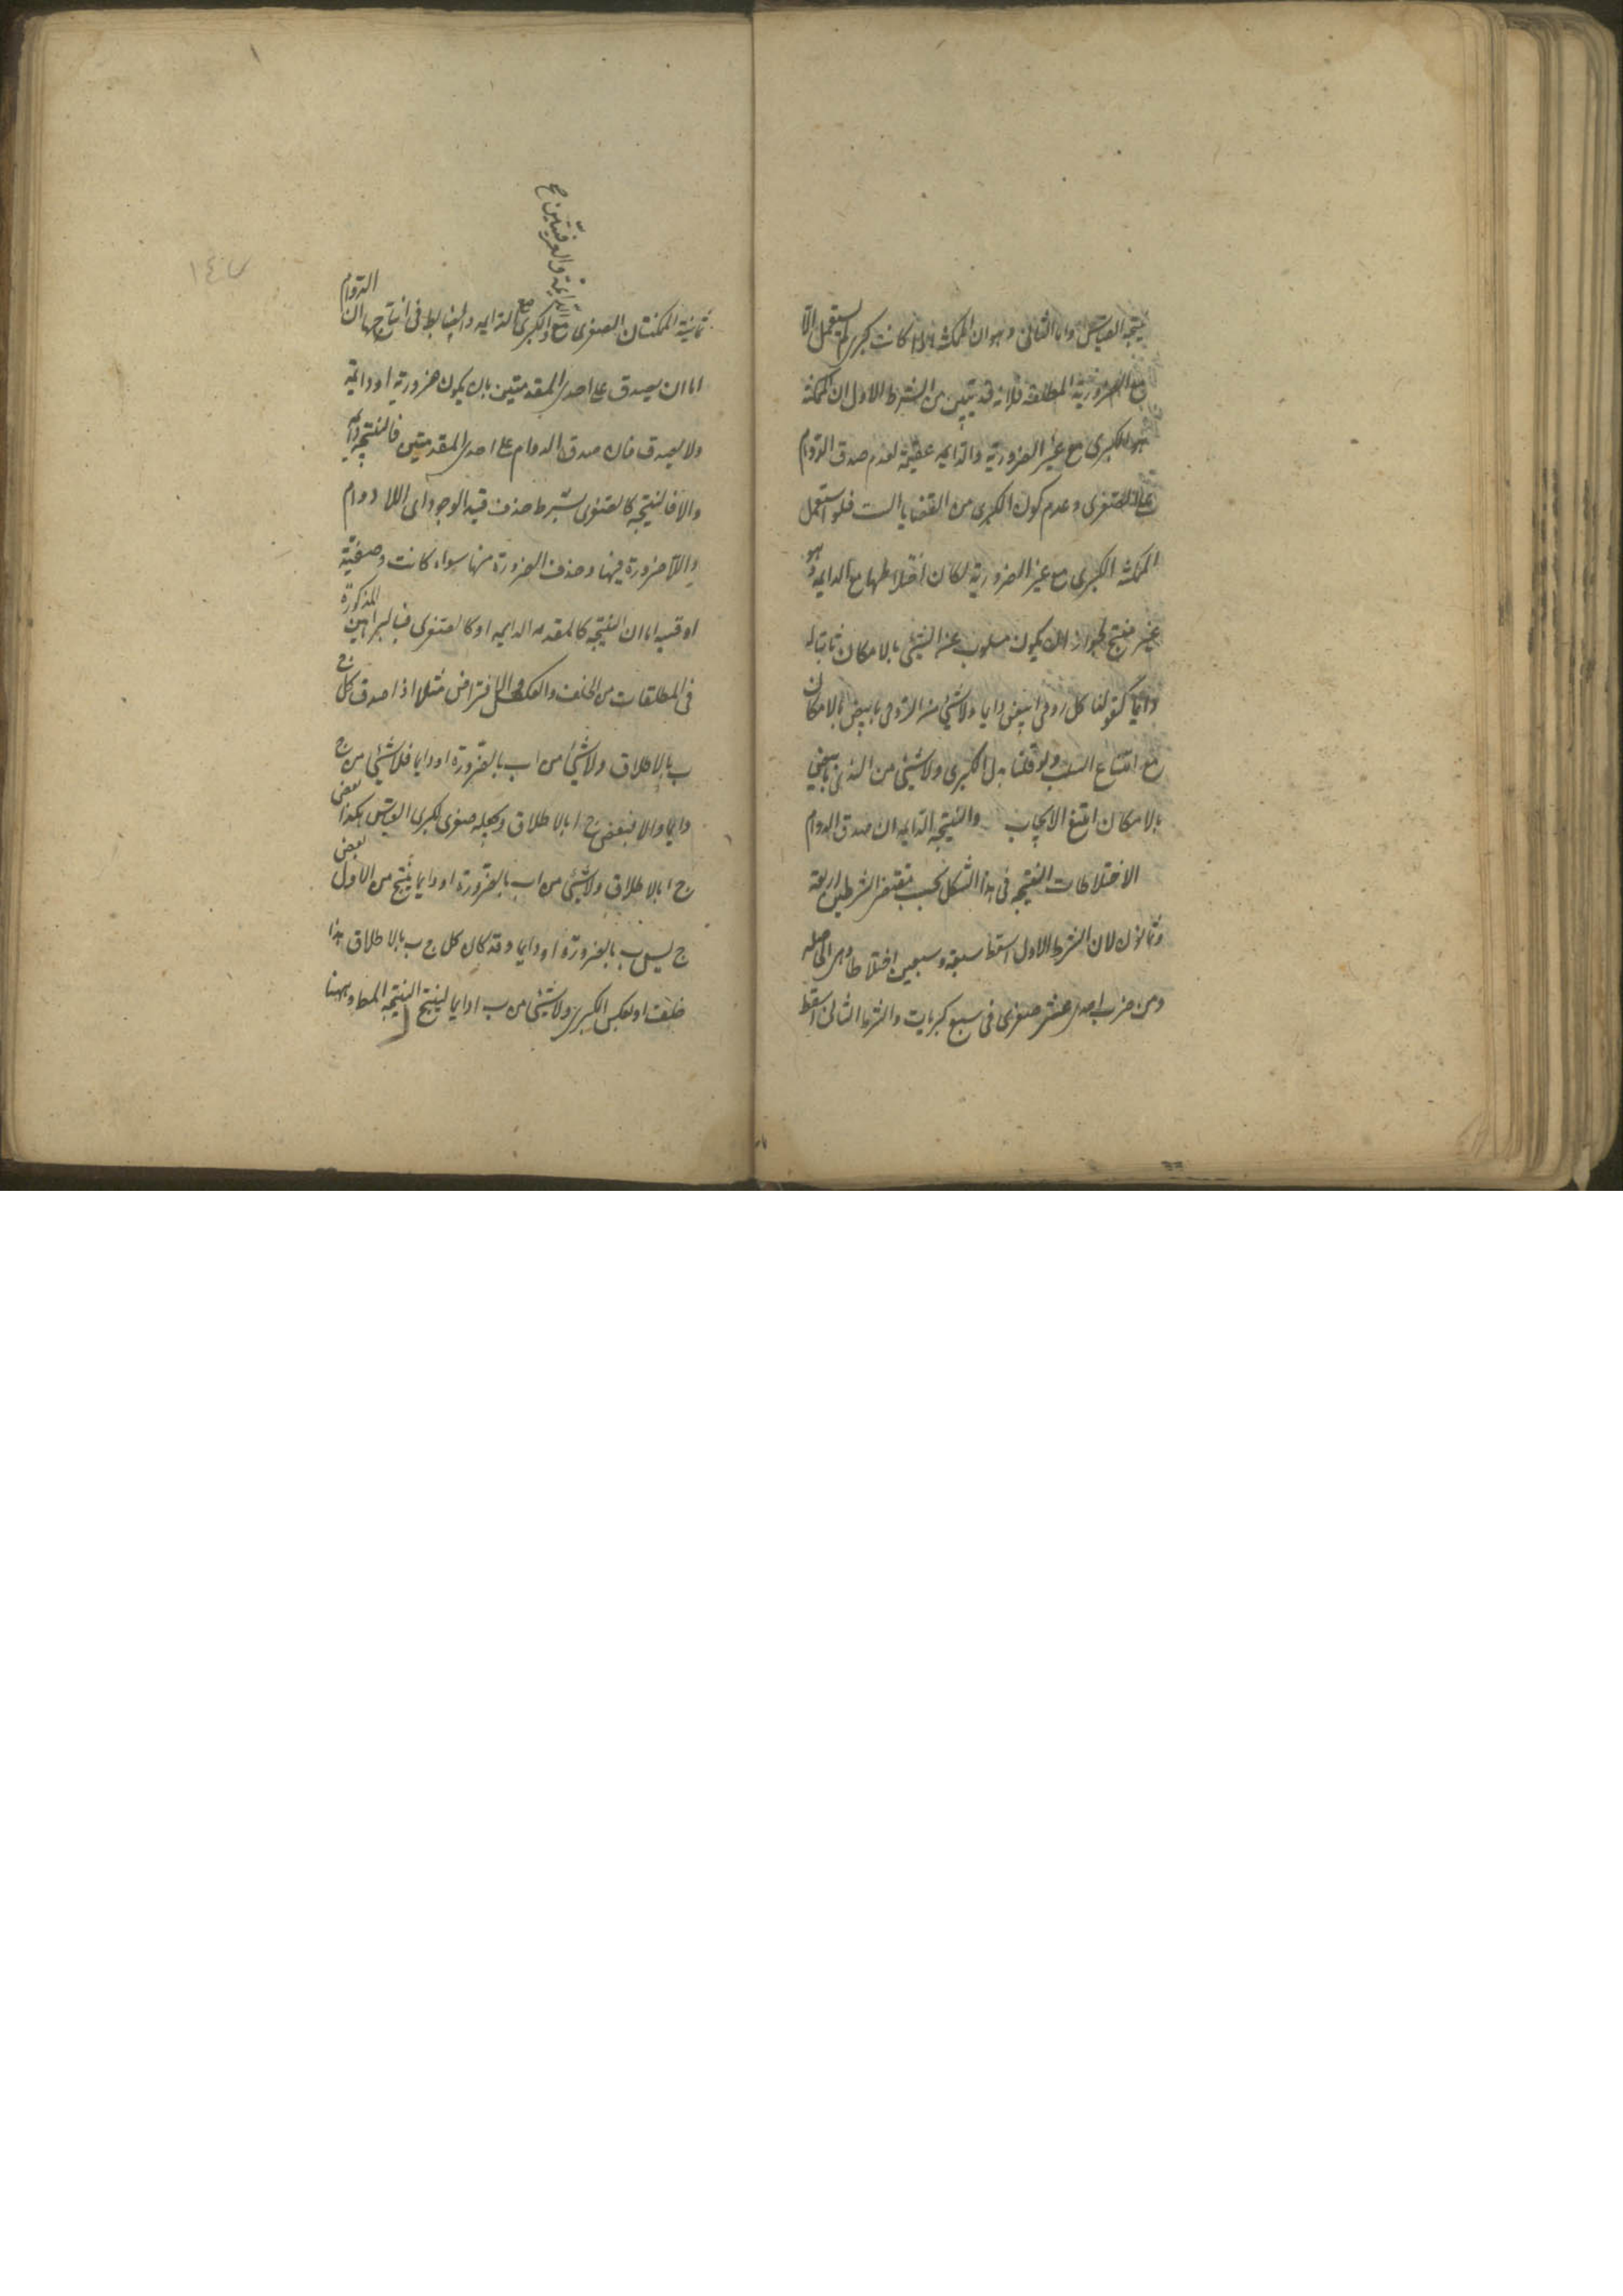 نتيجة القياس واما الثانى وهو ان الممكنة اذا كانت كبرى لم تستعمل الا
مع الضرورية المطلقة فلانه قد تبين من الشرط الاول ان الممكنة
الكبرى مع غير الضرورية والدايمه عقيمة لعدم صدق الدوام
على الصغرى وعدم كون الكبرى من القضايا الست فلو استعمل
الممكنة الكبرى مع غير الضرورية لكان اختلاطها مع الدايمه وهو
غير منتج لجواز ان يكون مسلوب عن الشئ بالامكان ثابتا له
دايما كقولنا كل رومى ابيض دايما ولا شئ من الرومى بابيض بالامكان
مع امتناع السلب ولو قلنا بدل الكبرى ولا شئ من بابيض
بالامكان امتنع الايجاب والنتيجه الدايمه ان صدق الدوام
الاختلاطات المنتجه فى هذا الشكل بحسب مقتضى الشرطين اربعة
وثمانون لان الشرط الاول اسقط سبعة وسبعين اختلاطا وهى الحاصله
ومن ضرب احدى عشر صغرى فى سبع كبريات والشرط الثانى اسقط
ثمانية الممكنتان الصغرى مع والكبرى مع الدايمه والضابط فى انتاجها ان الدوام
الدايمة والعرفيتين صح
اما ان يصدق على احدى المقدمتين بان يكون ضرورية او دائمة
ولا يصدق فان صدق الدوام على احدى المقدمتين فالنتيجه دايمه
والا فالنتيجه كالصغرى بشرط حذف قيد الوجود اى اللا دوام
واللا ضرورة فيها وحذف الضرورة منها سواء كانت وصفية
او وقتيه اما ان النتيجه كالمقدمه الدايمه او كالصغرى فبالبراهين المذكورة
فى المطلقات من الخلف والعكس والافتراض مثلا اذا صدق كل ج
ب بالاطلاق ولا شئ من ا ب بالضرورة او دايما فلا شئ من ج
دايما والا فبعض ج ا بالاطلاق ونجعله صغرى لكبرى القياس هكذا بعض
ج ا بالاطلاق ولا شئ من ا ب بالضرورة او دايما ينتج من الاول بعض
ج ليس ب بالضرورة او دايما وقد كان كل ج ب بالاطلاق هذا
خلف او بعكس الكبرى ولا شئ من ب ا دايما لينتج النتيجه المط وههنا